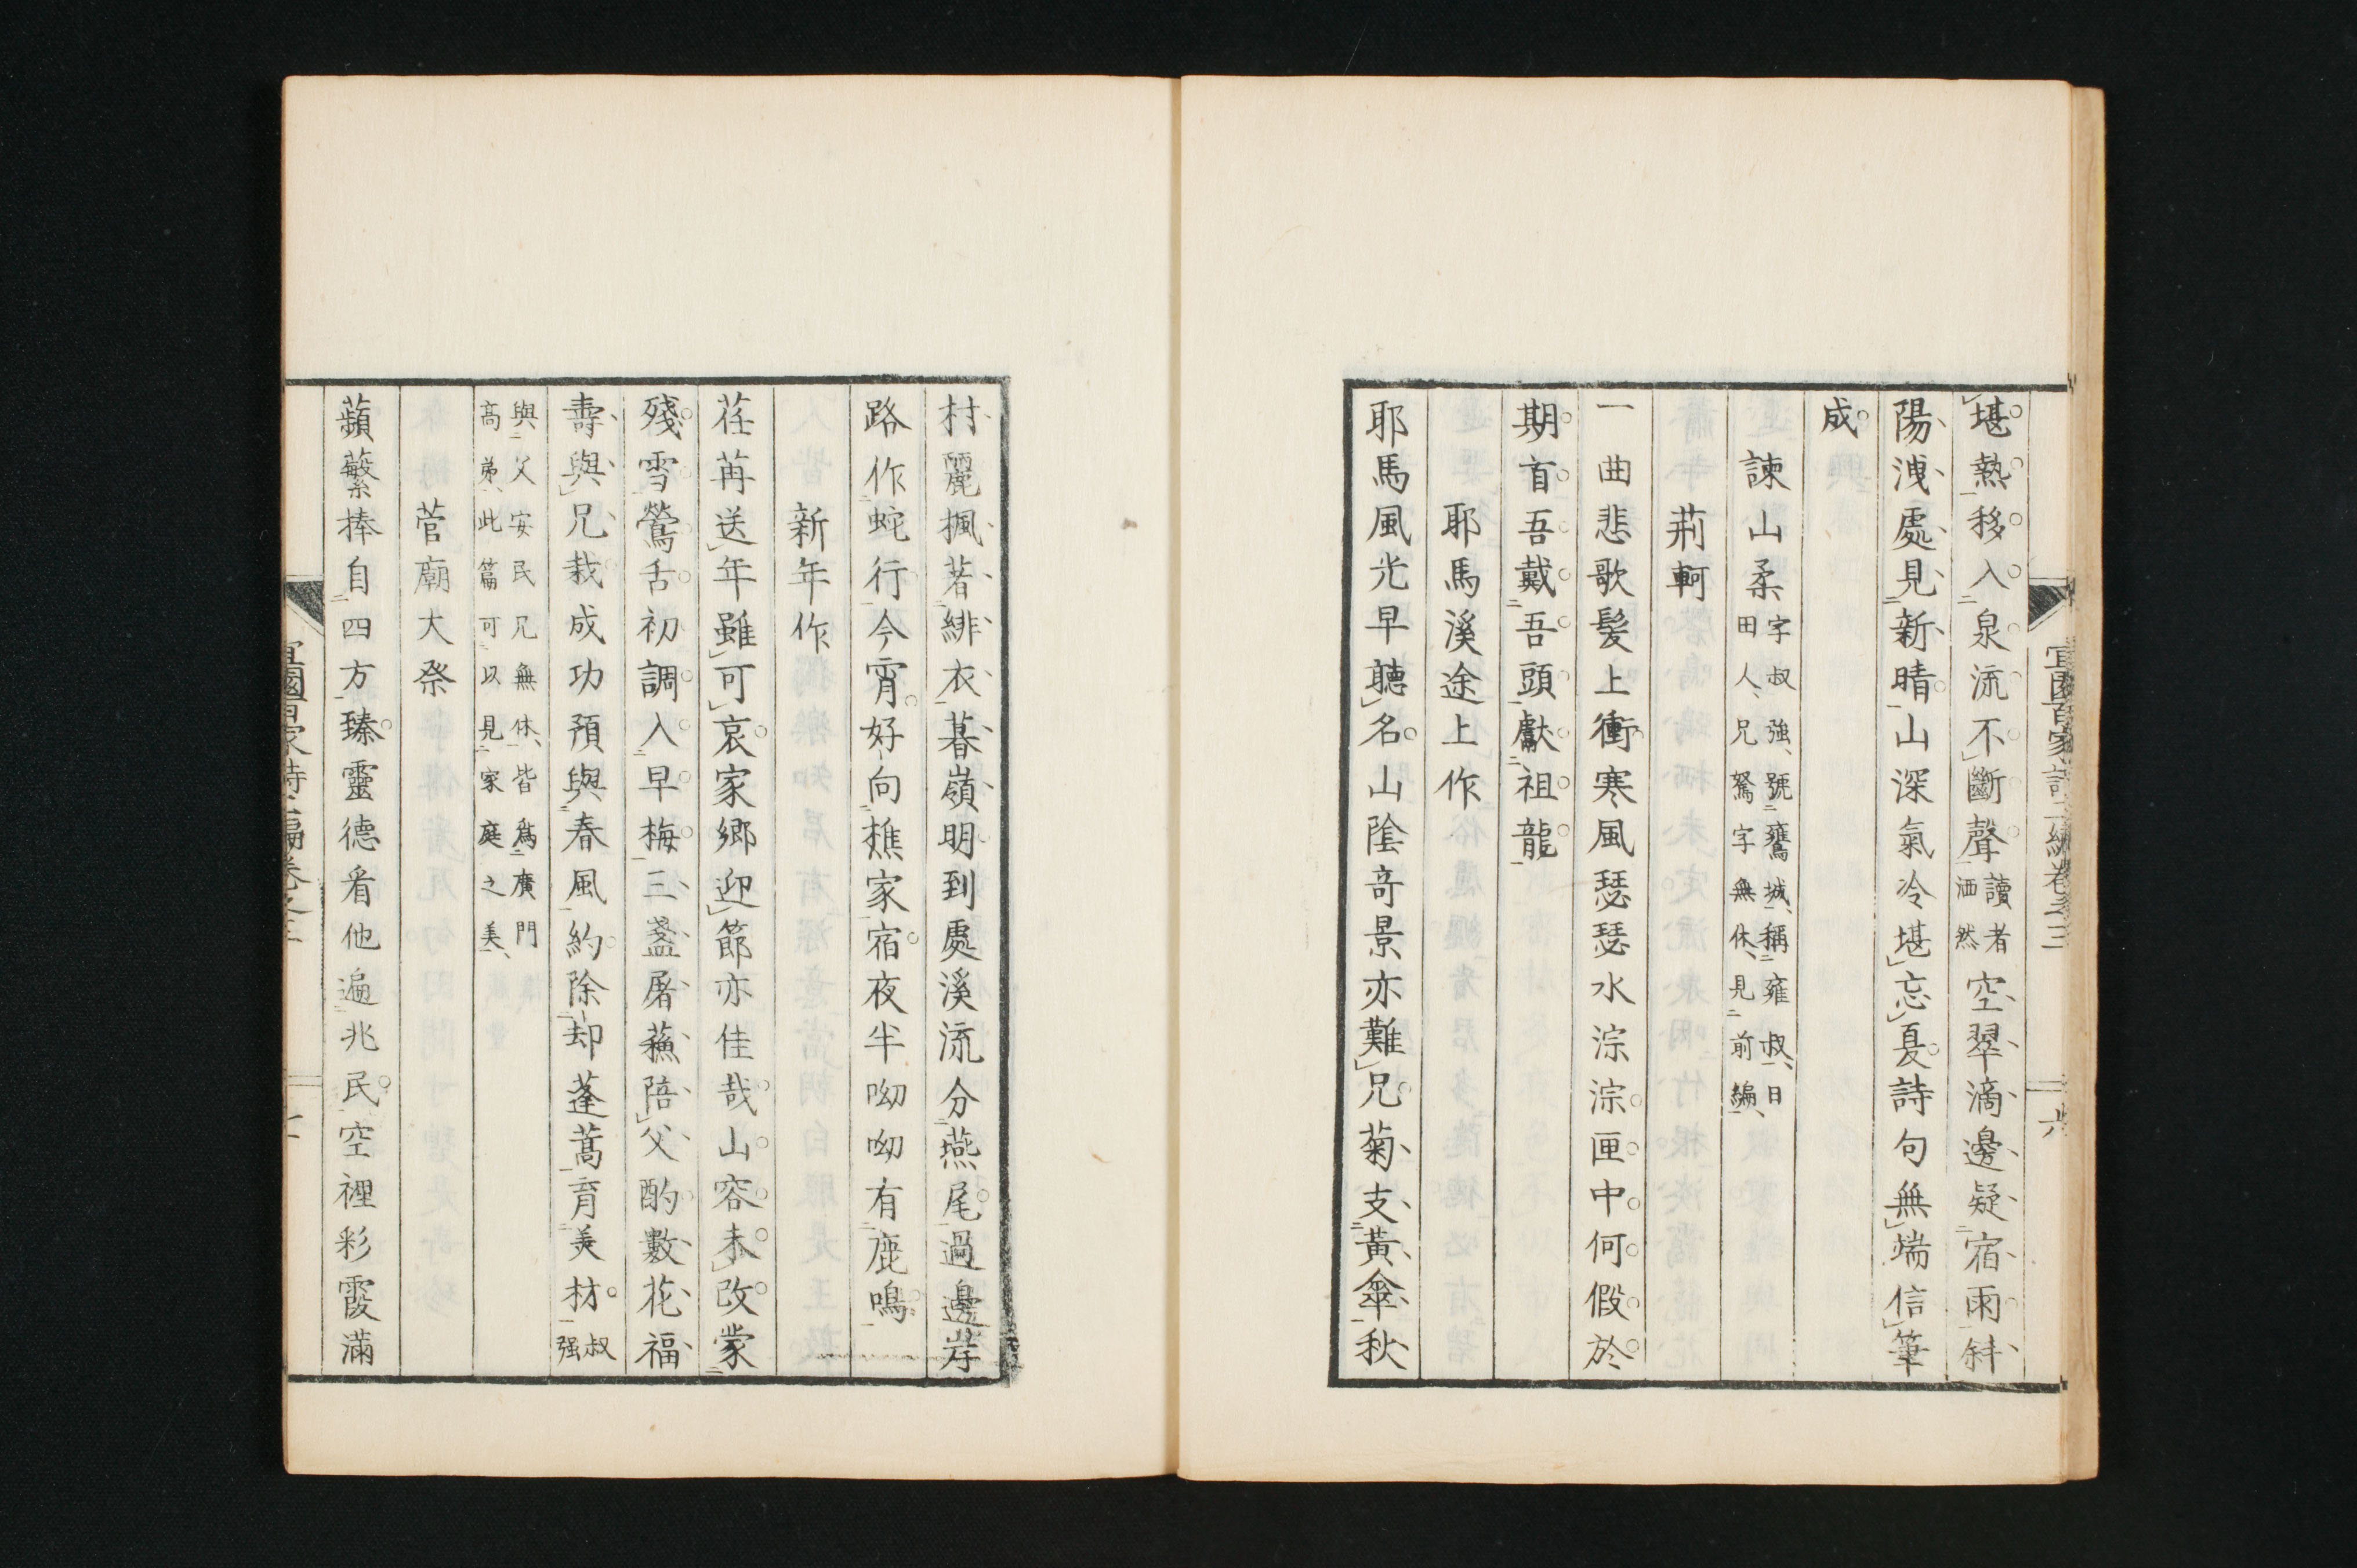 宜園百家詩二編卷之三 六
堪熱移入泉流不斷聲讀者洒然空翠滴邊疑宿雨斜
陽洩處見新晴山深氣冷堪忘夏詩句無端信筆
成
諫山柔字叔強號鶱城稱雍叔日田人兄駑字無休見前編
荊軻
一曲悲歌髮上衝寒風瑟瑟水淙淙匣中何假於
期首吾戴吾頭獻祖龍
耶馬溪途上作
耶馬風光早聽名山陰奇景亦難兄菊支黃傘秋
村麗楓著緋衣暮嶺明到處溪流分燕尾過邊荐
路作蛇行今宵好向樵家宿夜半呦呦有鹿鳴
新年作
荏苒送年雖可哀家鄉迎節亦佳哉山容未改蒙
殘雪鶯舌初調入早梅三盞屠蘓陪父酌數花福
壽與兄栽成功預與春風約除却蓬蒿育美材叔强
與父安民兄無休皆爲廣門高弟此篇可以見家庭之美
菅廟大祭
蘋蘩捧自四方臻靈德看他遍兆民空裡彩霞滿
宜園百家詩二編卷之三